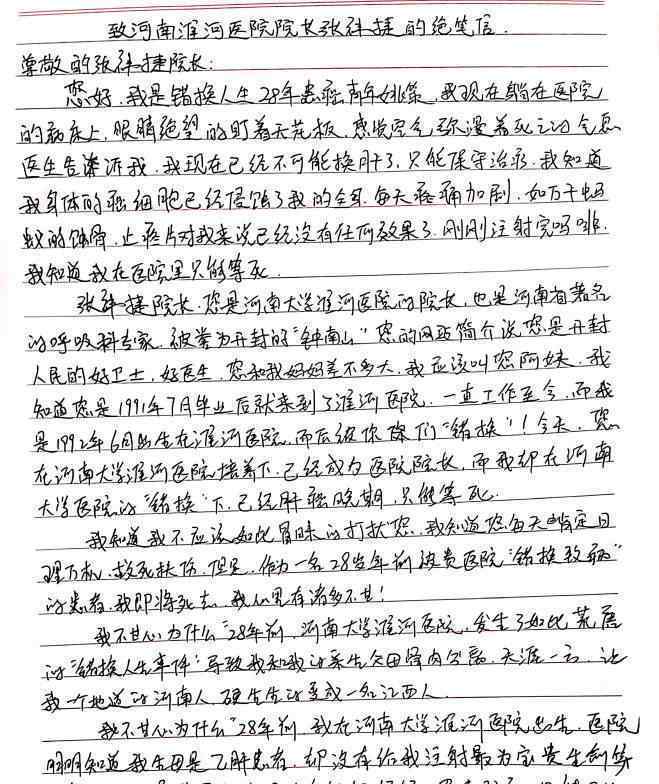 致河南淮河医院院长张祎捷的绝笔信.
尊敬的张祎捷院长:
您好.我是错换人生28年患癌青年姚策.我现在躺在医院
的病床上,眼睛绝望的盯着天花板,感觉空气弥漫着死亡的气息
医生告诉我.我现在已经不可能换肝了.只能保守治疗.我知道
我身体的癌细胞已经侵蚀了我的全身.每天疼痛加剧.如万千蚂
蚁的蚀骨.止疼片对我来说已经没有任何效果了.刚刚注射完吗啡.
我知道我在医院里只能等死.
张祎捷院长.您是河南大学淮河医院的院长,也是河南省著名
的呼吸科专家.被誉为开封的"钟南山"您的网站简介说您是开封
人民的好卫士,好医生.您和我妈妈差不多大.我应该叫您阿姨.我
知道您是1991年7月毕业后就来到了淮河医院.一直工作至今.而我
是1992年6月出生在淮河医院.而后被你院们"错换"!今天.您
在河南大学淮河医院培养下.已经成为医院院长,而我却在河南
大学医院的"错换"下.已经肝癌晚期.只能等死.
我知道我不应该如此冒昧的打扰您.我知道您每天肯定日
理万机.救死扶伤.但是.作为一名28岁年前被贵医院"错换致病"
的患者.我即将死去.我心里有诸多不甘!
我不甘心为什么"28年前,河南大学淮河医院,发生了如此荒唐
的"错换人生事件"导致我和我的亲生父母骨肉分离.天涯一方.让
我一个地道的河南人.硬生生的变成一名江西人.
我不甘心为什么"28年前.我在河南大学淮河医院出生.医院
明明知道我生母是乙肝患者.却没有给我注射最为宝贵生命第